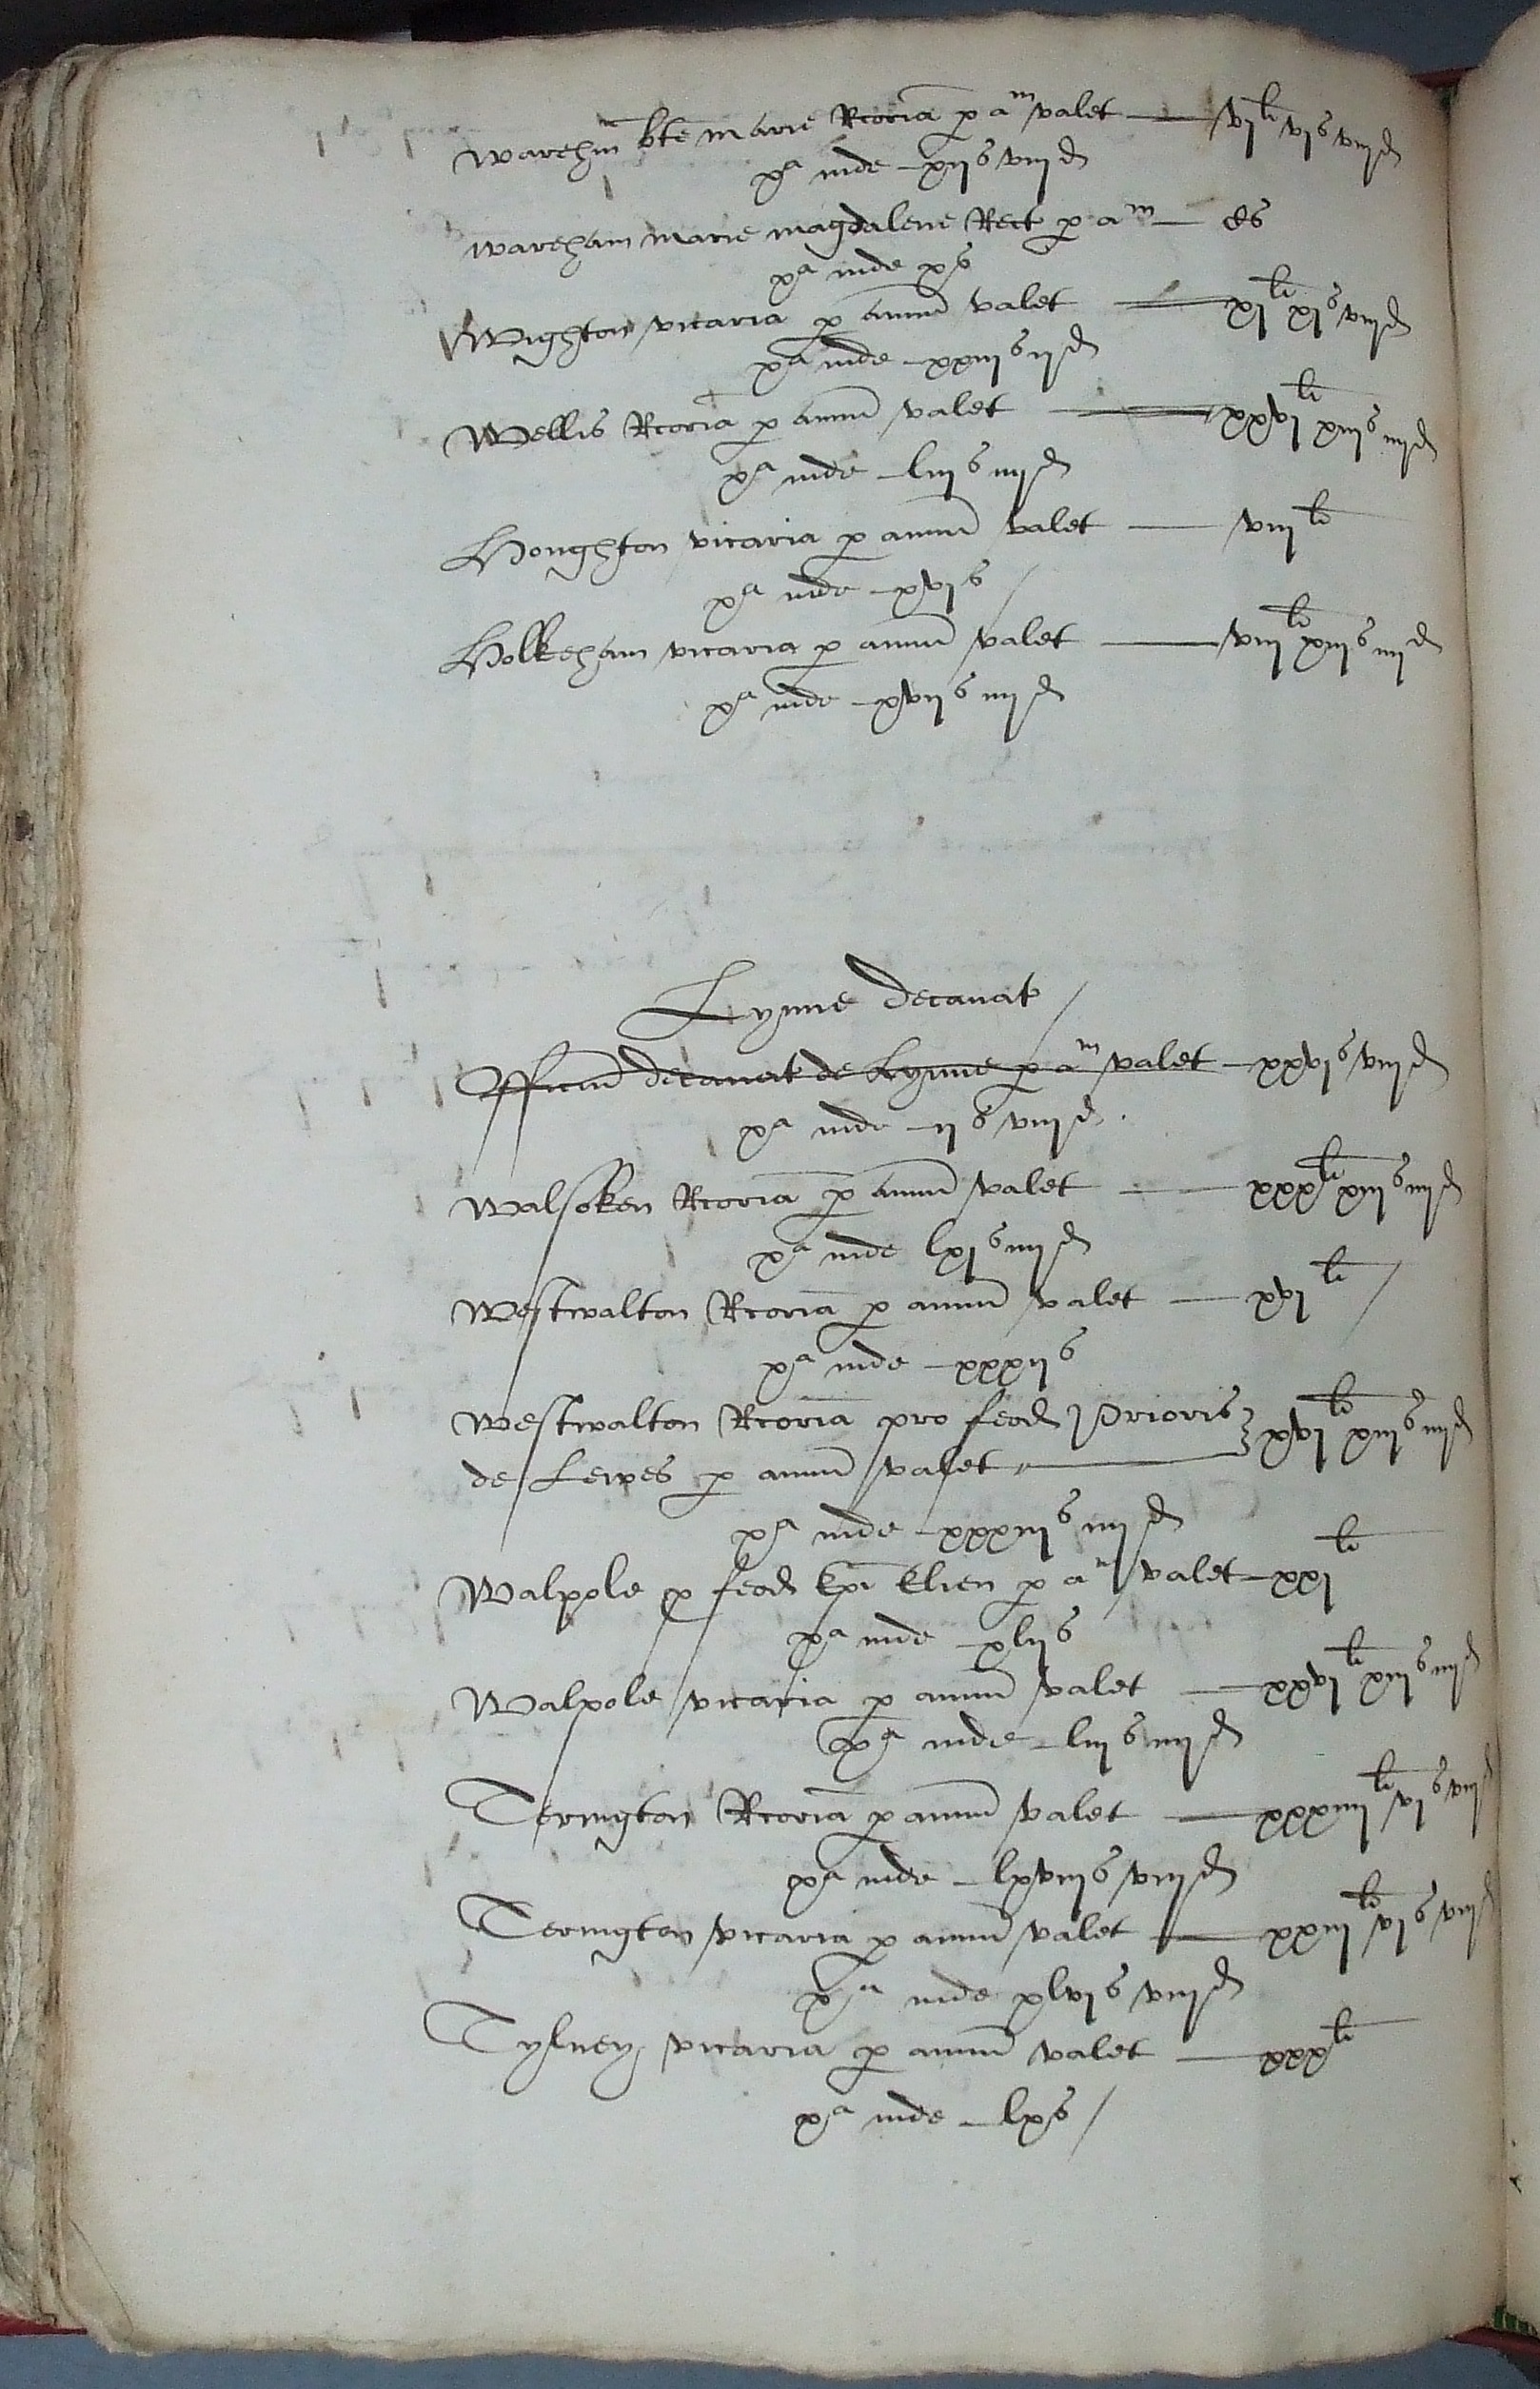 Warehm bte marie Rcoria p a^m valet — vj^li vj^s viij^d
x^a inde – xij^s viij^d
Wareham marie magdalene Rect p a^m — Cs
x^a inde x^s
Wighton vicaria p annu valet — xj^li xj^s viij^d
x^a inde – xxiij^s ij^d
Wellis Rcoria p annu valet — xxvj^li xiij^s iiij^d
x^a inde – liij^s iiij^d
Houghton vicaria p annu valet — viij^li
x^a inde – xvj^s /
Holkeham vicaria p annu valet — viij^li xiij^s iiij^d
x^a inde – xvij^s iiij^d
Lynne decanat /
Officiu decanat de Lynne p a^m valet – xxvj^s viij^d
x^a inde – ij^s viij^d
Walsoken Rcoria p annu valet — xxx^li xiij^s iiij^d
x^a inde lxj^s iiij^d
Westwalton Rcoria p annu valet — xvj^li /
x^a inde – xxxij^s
Westwalton Rcoria pro feod Prioris
de Lewes p annu valet — xvj^li xiij^s iiij^d
x^a inde – xxxiij^s iiij^d
Walpole p feod Epi Elien p a^m valet – xxj^li
x^a inde – xlij^s
Walpole vicaria p annu valet — xxvj^li xiij^s iiij^d
x^a inde – liij^s iiij^d
Terington Rcoria p annu valet — xxxiiij^li vj^s viij^d
x^a inde – lxviij^s viij^d
Terington vicaria p annu valet — xxiij^li vj^s viij^d
x^a inde xlvj^s viij^d
Tylney vicaria p annu valet — xxx^li
x^a inde – lx^s /